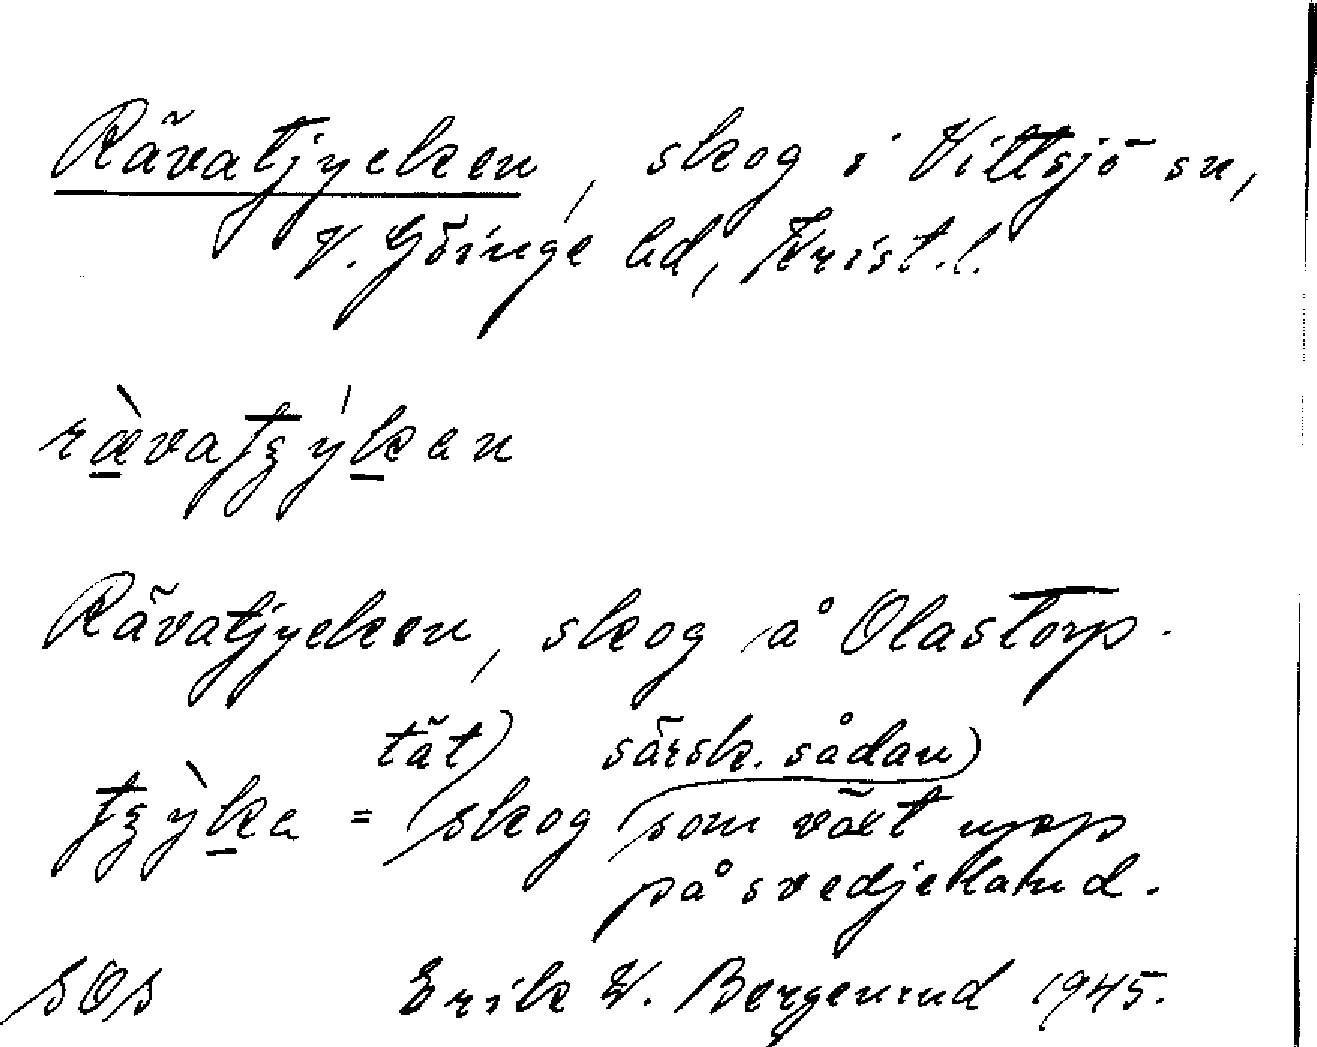 Rävatjycken, skog i Vittsjö sn,
V. Göinge hd, Krist.l.
rævatʒyken
Rävatjycken, skog å Olastorp.
tät särsk. sådan
tʒyka = skog som växt upp
på svedjeland.
SOS Erik W. Bergenund 1945.